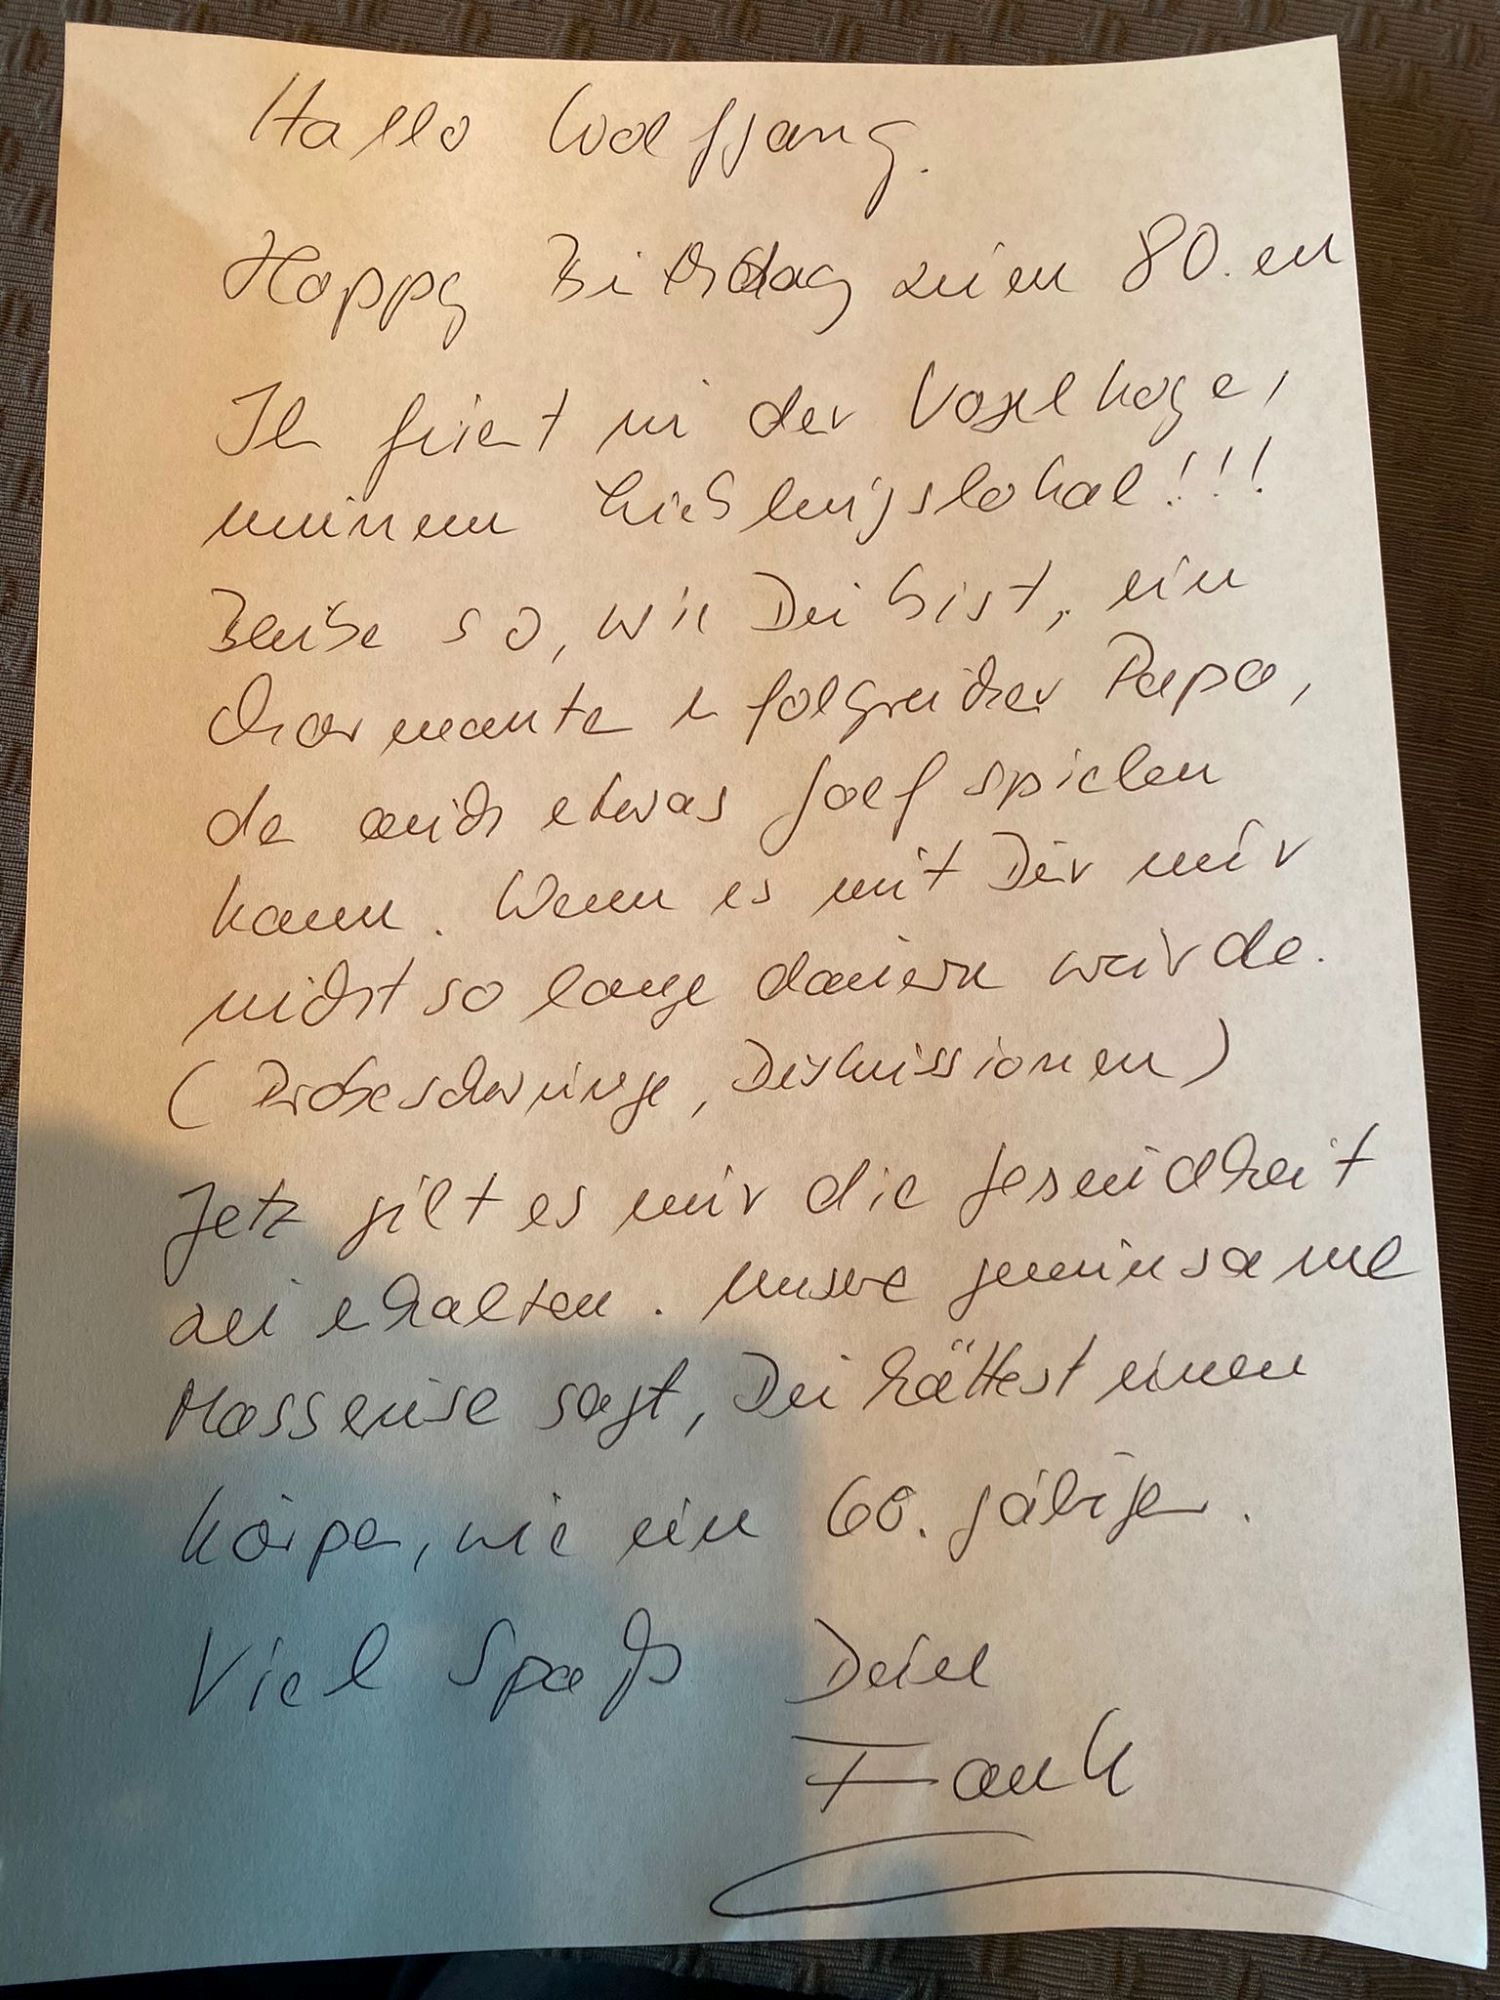 Hallo Wolfgang.
Happy Birthday zum 80.en
Ihr feiert in der Vogelkoje,
meinem Lieblingslokal!!!
Bleibe so, wie Du bist, ein
charmante erfolgreicher Papa,
der auch etwas golf spielen
kann. Wenn es mit Dir nur
nicht so lange dauern würde.
(Probeschwünge, Diskussionen)
Jetz gilt es nur die gesundheit
zu erhalten. Unsere gemeinsame
Masseuise sagt, Du hättest einen
Körper, wie ein 60. jähriger.
Viel Spaß Dein
Frank